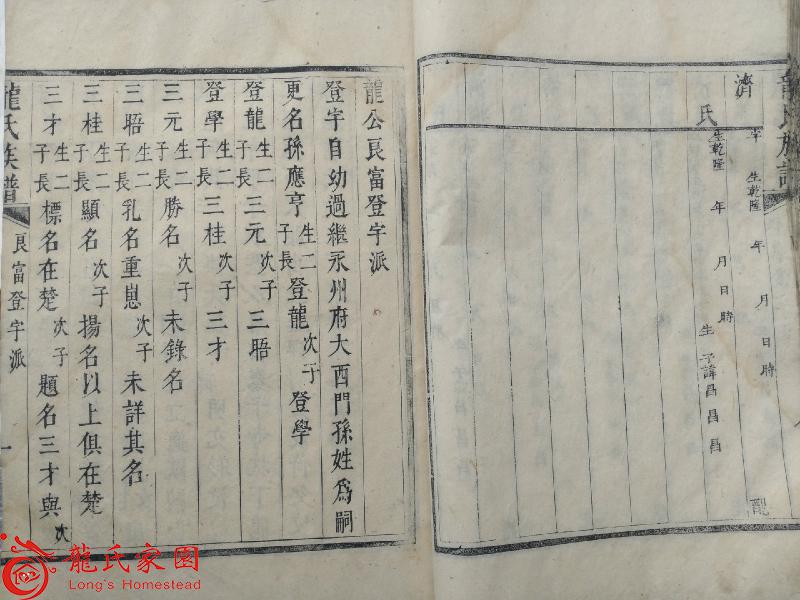 龍氏族譜
濟 字 生乾隆 年 月 日 時 配
氏 生乾隆 年 月 日 時 生 子諱昌 昌 昌
龍公良富登宇派
登宇自幼過繼永州府大西門孫姓爲嗣
更名孫應亨 生二子長 登龍 次子 登學
登龍 生二子長 三元 次子 三晤
登學 生二子長 三桂 次子 三才
三元 生二子長 勝名 次子 未錄名
三晤 生二子長 乳名重崽 次子 未詳其名
三桂 生二子長 顯名 次子 揚名以上俱在楚
三才 生二子長 標名在楚 次子 題名三才與次
龍氏族譜 良富登宇派 一
龍氏家園
Long's Homestead